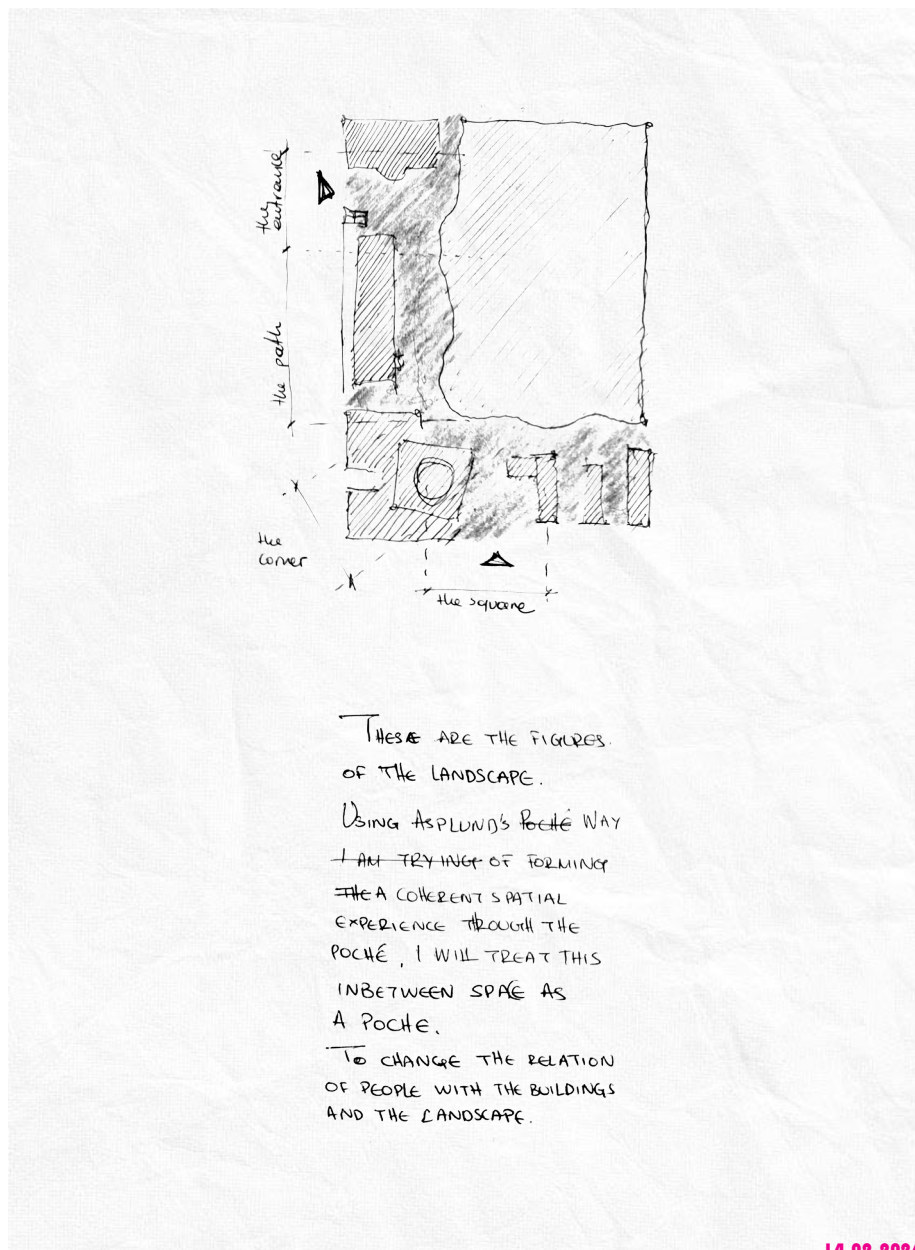 the entrance
the path
the corner
the square
THESE ARE THE FIGURES.
OF THE LANDSCAPE.
USING ASPLUND'S POCHÉ WAY
I AM TRYING OF FORMING
THE A COHERENT SPATIAL
EXPERIENCE TROUGH THE
POCHÉ, I WILL TREAT THIS
INBETWEEN SPACE AS
A POCHE.
TO CHANGE THE RELATION
OF PEOPLE WITH THE BUILDINGS
AND THE LANDSCAPE.